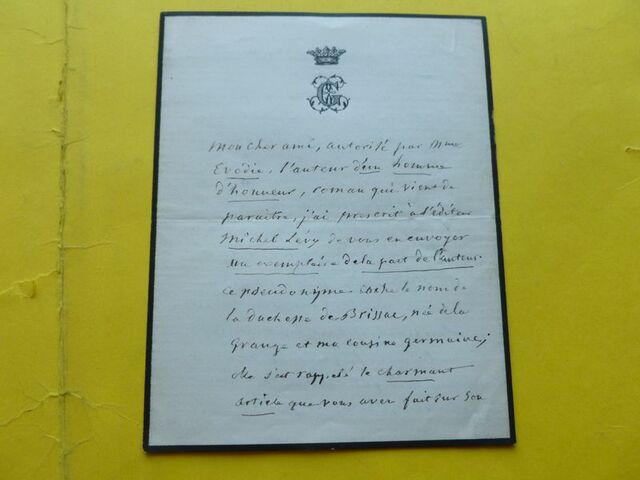 Mon cher ami, autorisé par Mme
Evodie, l'auteur d'un homme
d'honneur, roman qui vient de
paraître, j'ai prescrit à l'éditeur
Michel Lévy de vous en envoyer
un exemplaire de la part de l'auteur.
ce pseudonyme cache le nom de
la duchesse de Brissac, née de la
Grange et ma cousine germaine;
elle s'est rappelé le charmant
article que vous avez fait sur son